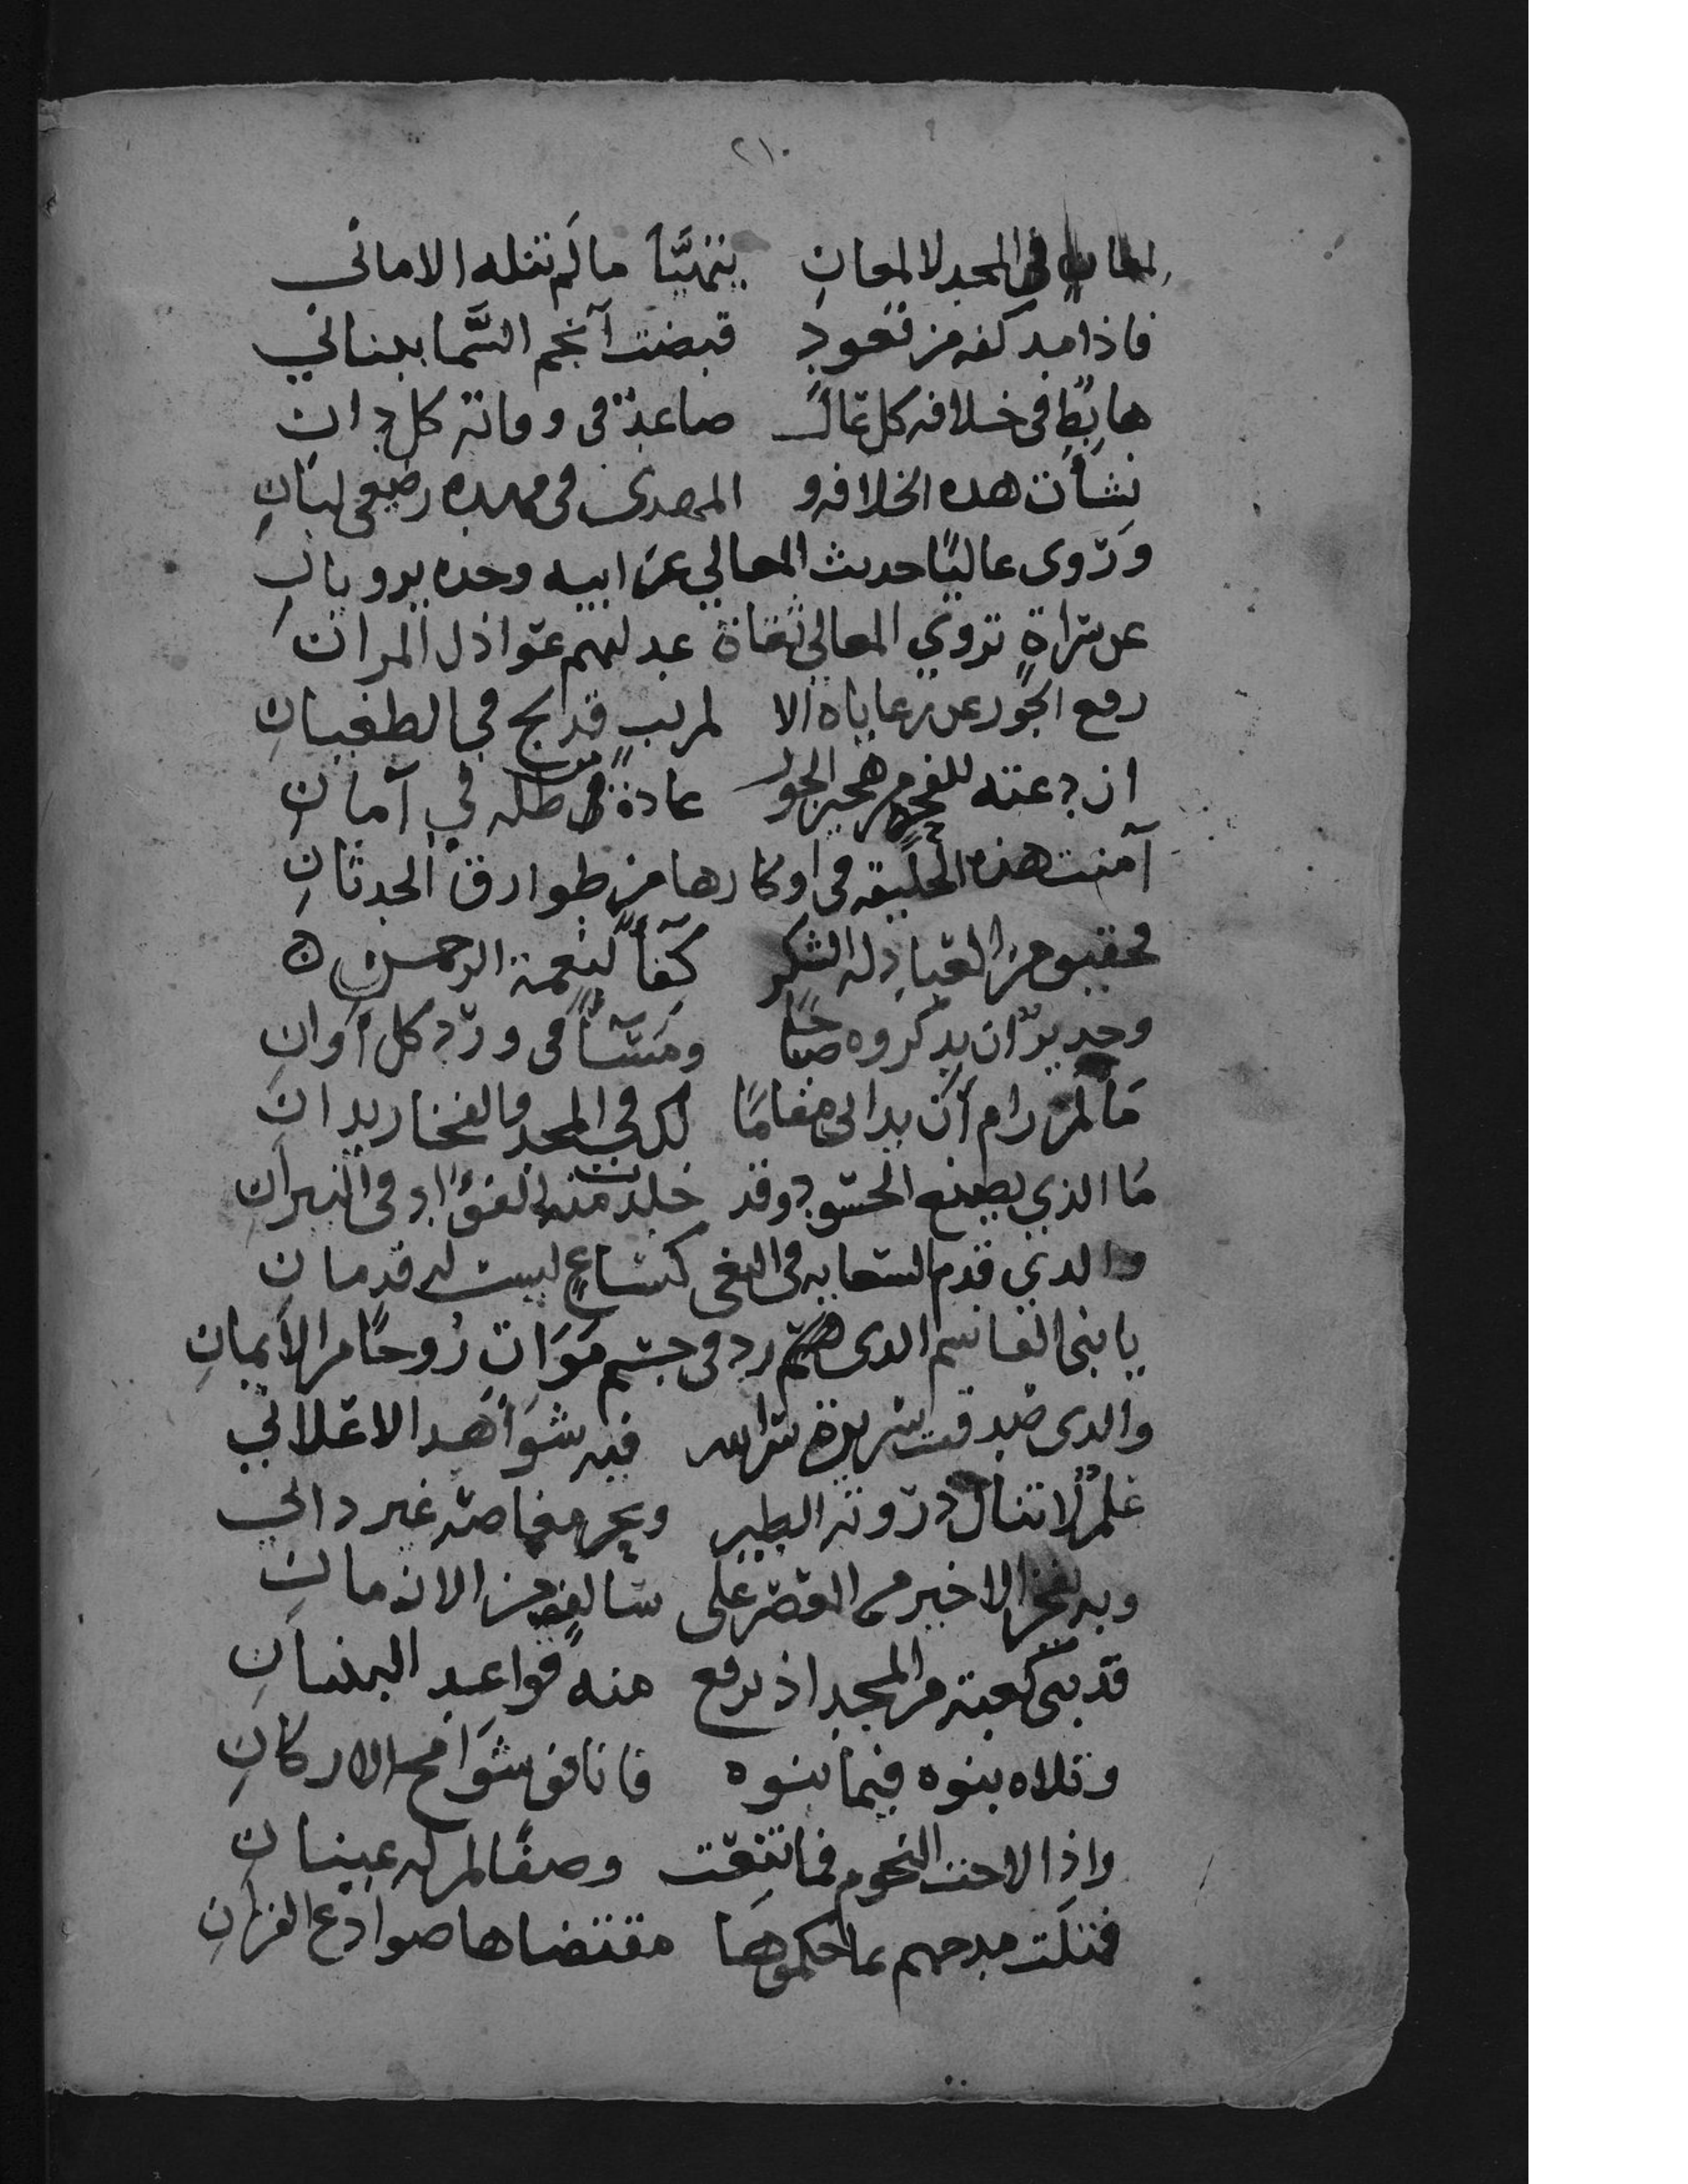 ٢١٠
لمعانٍ في المجد لا لمعانِ يتمنَّيَا مالم تنله الامانى
فاذا مد كفه من قعودٍ قبضت آنجم السَّما ببنانى
هابِطٍ فى خلافه كل عالٍ صاعدٌ فى وفاته كل دانِ
نشأت هده الخلافه و المهدى فى مهده رضيعى لبانِ
وروى عاليًا حديث المعالي عن ابيه وجده يرويانِ
عن سراةٍ تروي المعالي ثقاة عدلهم عواذل المران
رفع الجور عن رعاياه الا لمريب قد لج في الطغيانِ
ان دعته للفجر هجير الجور عادة من ظله في آمانِ
آمنت هذه الخليقه فى اوكارها من طوارق الحدثانِ
فحقيق من العباد له الشكر كِفَاً لنعمة الرحمن
وجديرٌ ان يذكروه صباحًا ومَسَآءً فى ورد كل أوانِ
مَا لمن رام أن يدانى مقامًا لك في المجد والفخار يدانِ
مَا الذي يصنع الحسود وقد خلدت منه الفؤاد فى النيرانِ
والدي قدم السعايه فى البغى كساعٍ ليست له قدمانِ
يا بنى القاسم الدى هم رد فى جسم مَوَاتٍ رُوحًا من الايمانِ
والدى صدقت سريرة سر الله فيه شوَاهد الاعلانِي
علمٌ لا تنال ذروته الطير وبحر مغاصه غير داني
وبه يفخر الاخير من العصر على سالفٍ من الازمانِ
قد بنى كعبة من المجد اذ يرفع منه قواعد البنيانِ
وتلاه بنوه فيما بنوه فانافو شوَامخ الاركانِ
واذا لاحت النجوم فما تنعت وصفًا لمن له عينانِ
فتلت مدحهم بما حكموها مقتضاها صوادع القرآنِ